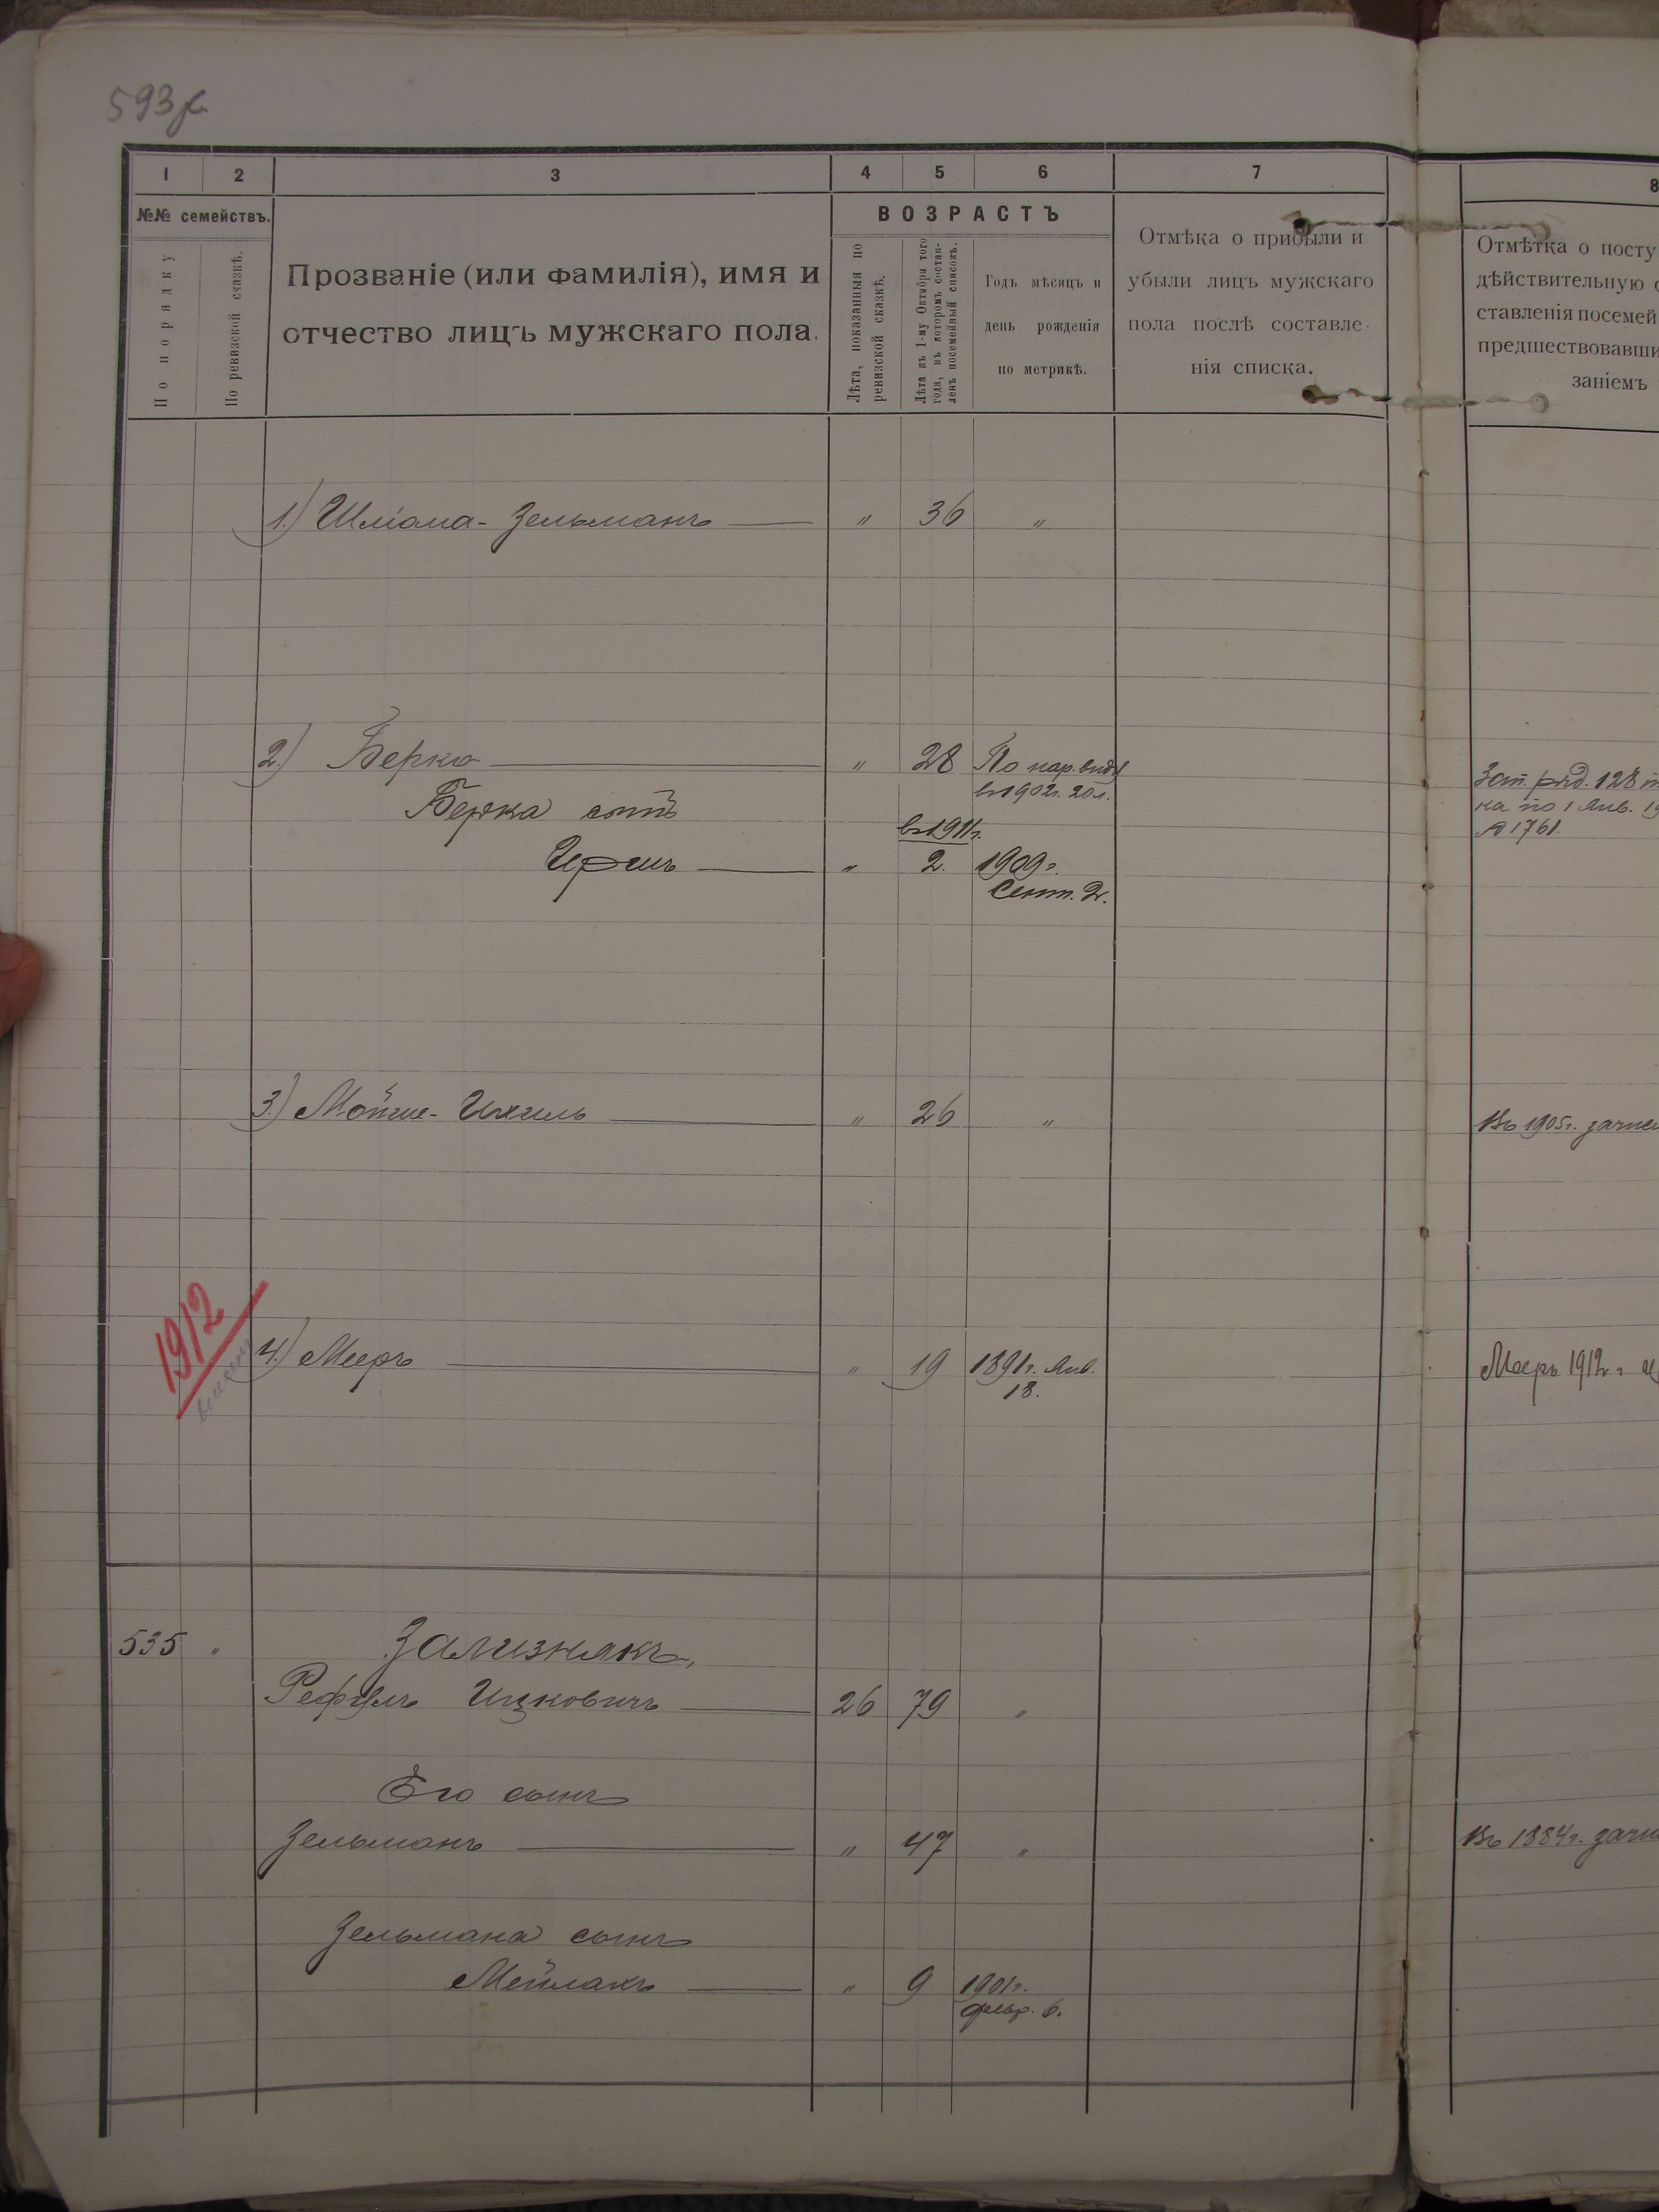 593
1 2 3 4 5 6 7 8
№№ семействъ.
По порядку
По ревизской сказкѣ.
Прозваніе (или фамилія), имя и
отчество лицъ мужскаго пола.
ВОЗРАСТЪ
Лѣта, показанныя по
ревизской сказкѣ.
Лѣта къ 1-му Октября того
года, въ которомъ состав-
ленъ посемейный списокъ.
Годъ мѣсяцъ и
день рожденія
по метрикѣ.
Отмѣка о прибыли и
убыли лицъ мужскаго
пола послѣ составле-
нія списка.
Отмѣтка о посту
дѣйствительную
ставленія посемей
предшествовавши
заніемъ
1.) Шлiома-Зельманъ — " 36 "
2.) Берко — " 28 По нар. виду
въ 1902г. 20 л.
Зап. ряд. 128
ка по 1 Янв. 19
№ 1761.
Берка сынъ
въ 1911г.
Иршъ — " 2. 1909г.
Сент. 2.
3.) Мойше-Ихиль — " 26 "
Въ 1905г. зачис
1912
4.) Мееръ — " 19 1891г. Янв.
18.
Мееръ 1912г
535 "
Зализнякъ,
Рефулъ Ицковичъ — 26 79 "
Его сынъ
Зельманъ — " 47 "
Въ 1884г. зачи
Зельмана сынъ
Мейлахъ — " 9 1901г.
февр. 6.